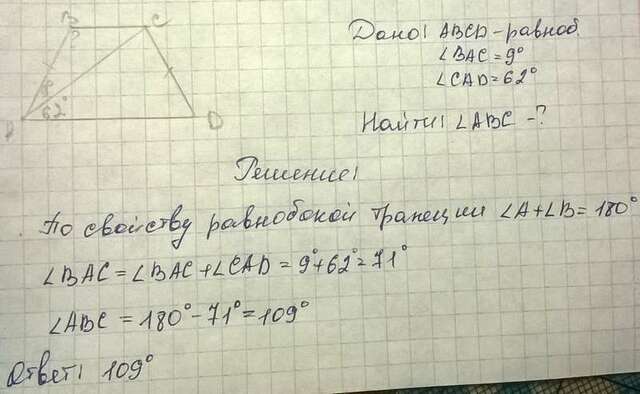 B C
62°
A D
Дано: ABCD - равноб.
∠BAC = 9°
∠CAD = 62°
Найти: ∠ABC - ?
Решение:
По свойству равнобокой трапеции ∠A + ∠B = 180°
∠BAC = ∠BAC + ∠CAD = 9° + 62° = 71°
∠ABC = 180° - 71° = 109°
Ответ: 109°